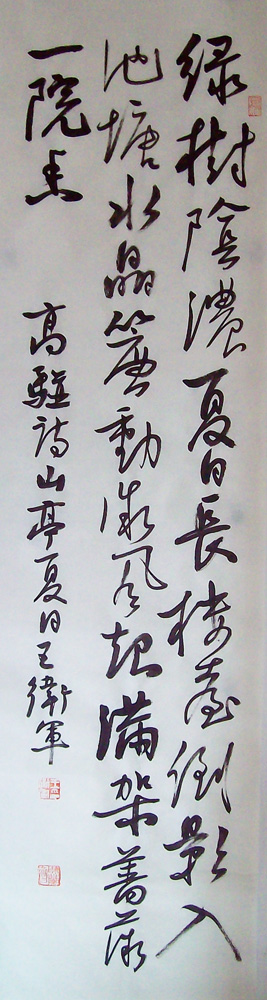 绿樹陰濃夏日長楼臺倒影入
池塘水晶簾動微风起满架蔷薇
一院香
高駢詩山亭夏日王衛軍